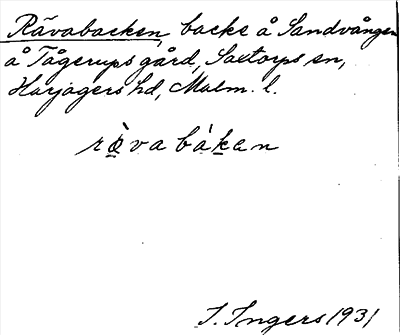 Rävabacken, backe å Sandvången
å Tågerups gård, Saxtorps sn,
Harjagers hd, Malm. l.
rävabákan
I. Ingers 1931